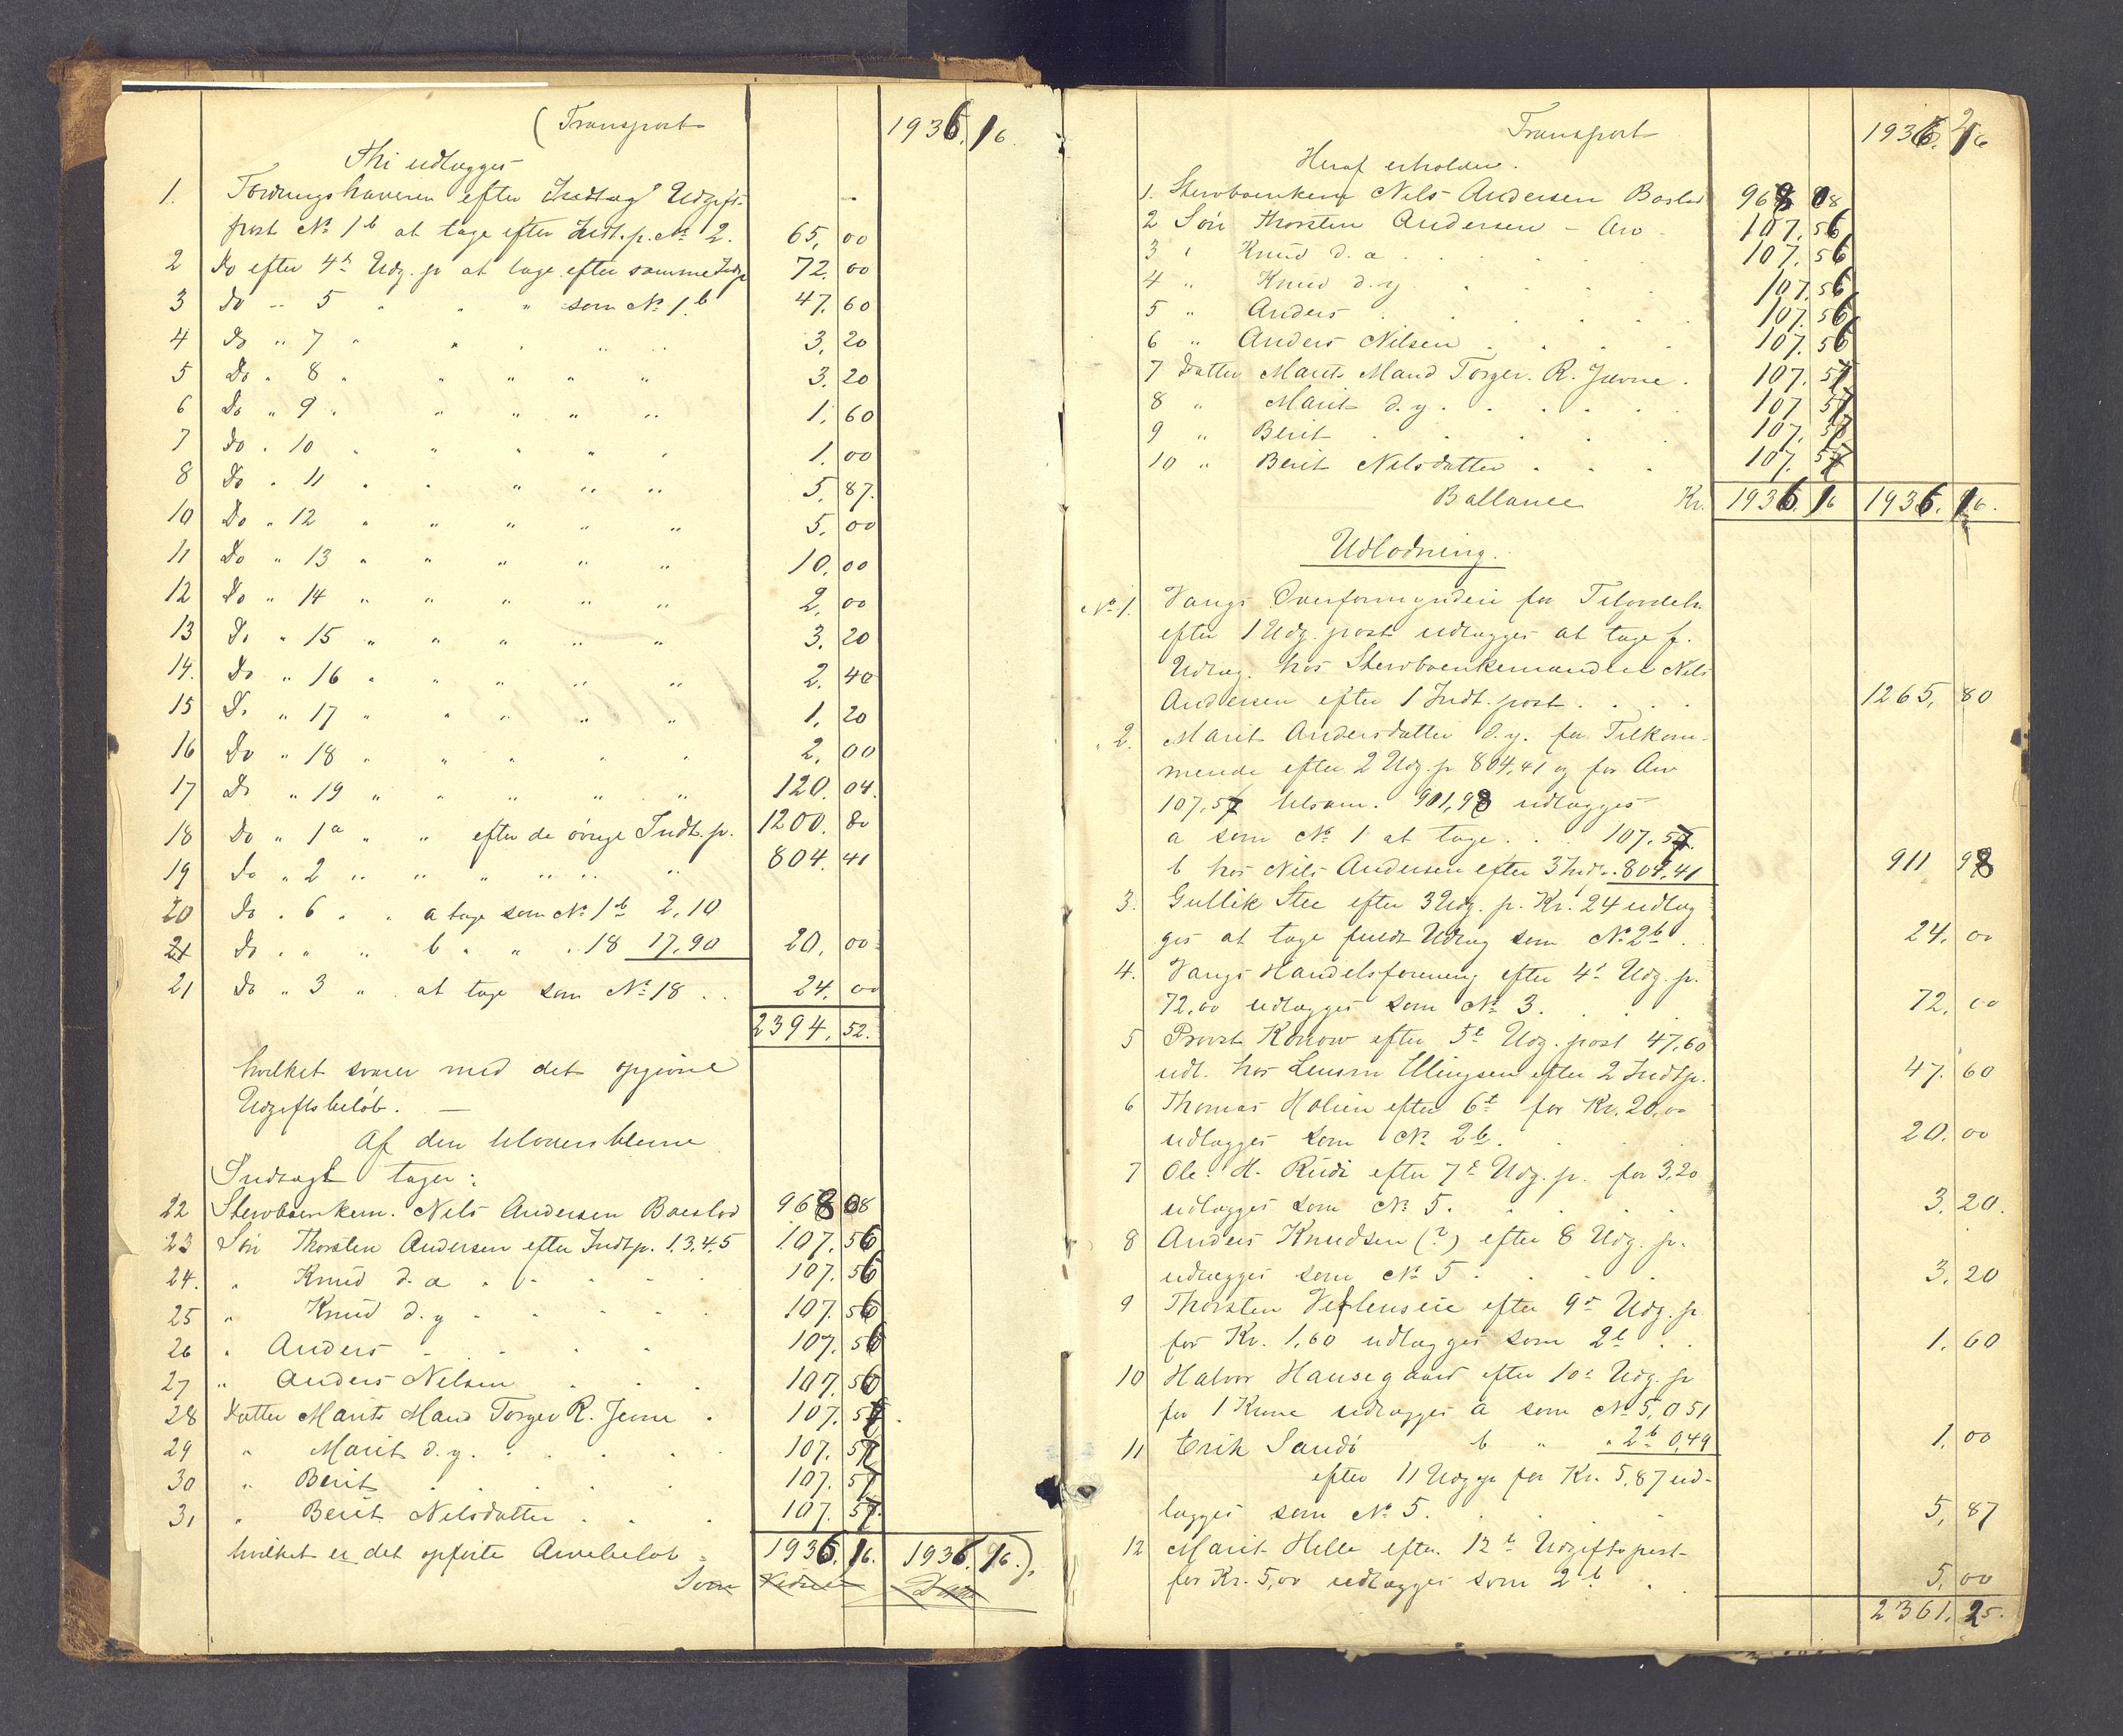 (Transport 1936.16.
Thi udlægges
1. Fordringshaveren efter Indtag Udgift-
post No 1b at tage efter Indt.p. No 2. 65,00
2 Do efter 4de Udg. p at tage efter samme Indtp 72.00
3 Do " 5 " " " som No 1b 47.60
4 Do " 7 " " " " " 3.20
5 Do " 8 " " " " " 3.20
6 Do " 9 " " " " " 1.60
7 Do " 10 " " " " " 1.00
8 Do " 11 " " " " " 5.87.
10 Do " 12 " " " " " 5.00
11 Do " 13 " " " " " 10.00
12 Do " 14 " " " " " 2.00
13 Do " 15 " " " " " 3.20
14. Do " 16 " " " " " 2.40
15 Do " 17 " " " " " 1.20
16 Do " 18 " " " " " 2.00
17 Do " 19 " " " " " 120.04.
18 Do " 1a " " efter de övrige Indt. p. 1200.80
19 Do " 2 " " " " " " 804.41
20 Do " 6 " " a tage som No 1b 2,10
21 Do " " " b " " " 18 17,90 20.00
21 Do " 3 " at tage som No 18 . . 24.00
2394.52.
hvilket svarer med det opgivne
Udgiftsbeløb. —
Af den tiloversblevne
Indtægt tager:
22 Stervboenkem. Nils Andersen Baeslod 968 08
23 Sön Thorsten Andersen efter Indtp. 1.3.4.5 107.56
24. " Knud d. a . . . . 107.56
25 " Knud d. y . . . . 107.56
26 " Anders . . . . 107.56
27 " Anders Nilsen . . . 107.56
28 Datter Marits Mand Torger R. Jevne . 107.57.
29 " Marit d. y. . . . . 107.57
30 " Berit . . . . . 107.57
31 " Berit Nilsdatter . . . 107.57.
hvilket er det opførte Arvebeløb = 1936.16. 1936.16.).
Transport 1936.16
Heraf erholder.
1. Stervboenkem Nils Andersen Baslod 968 08
2 Sön Thorsten Andersen – Arv . 107.56
3 " Knud d. a . . . . . 107.56
4 " Knud d. y . . . . 107.56
5 " Anders . . . . . 107.56
6 " Anders Nilsen . . . . 107.56
7 Datter Marits Mand Torger. R. Jevne . 107.57
8 " Marit d. y . . . . . 107 57
9 " Berit . . . . . 107.57
10 " Berit Nilsdatter . . . 107.57
Ballance Kr. 1936.16 1936.16.
Udlodning.
No 1. Vangs Overformynderi for Tilgodeh.
efter 1 Udg. post udlægges at tage f.
Udlæg. hos Stervboenkemanden Nils
Andersen efter 1 Indt. post . . . . 1265,80
" 2. Marit Andersdatter d. y. for Tilkom-
mende efter 2 Udg. p 804,41 og for Arv
107,57 tilsam. 911,98 udlægges
a som No 1 at tage . . . 107,57.
b hos Nils Andersen efter 3 Indt. . 804,41 911 98
3. Gullik Stee efter 3 Udg. p. Kr. 24 udlæg
ges at tage fuldt Udlæg som No 2b . . 24.00
4. Vangs Handelsforening efter 4de Udg. p.
72.00 udlægges som No 3. . . . 72.00
5 Provst Konow efter 5te Udg. post 47,60
udl. hos Lensm Ellingsen efter 2 Indtp. 47.60
6 Thomas Holien efter 6te for Kr. 20,00
udlægges som No 2b. . . . 20.00
7 Ole. H. Rudi efter 7de Udg. p. for 3,20
udlægges som No 5. . . . . 3.20.
8 Anders Knudsen (?) efter 8 Udg. p.
udlægges som No 5 . . . . 3.20
9 Thorsten Veflenseie efter 9de Udg. p
for Kr. 1,60 udlægges som 2b . . 1.60
10 Halvor Hausegaard efter 10de Udg. p
for 1 Krone udlægges a som No 5, 0 51
11 Erik Sandö b " " 2b 0,49 1.00
efter 11 Udg p for Kr. 5,87 ud-
lægges som No 5. . . . . 5,87
12 Marit Helle efter 12te Udgiftspost
for Kr. 5,00 udlægges som 2b . . 5.00
2361.25.